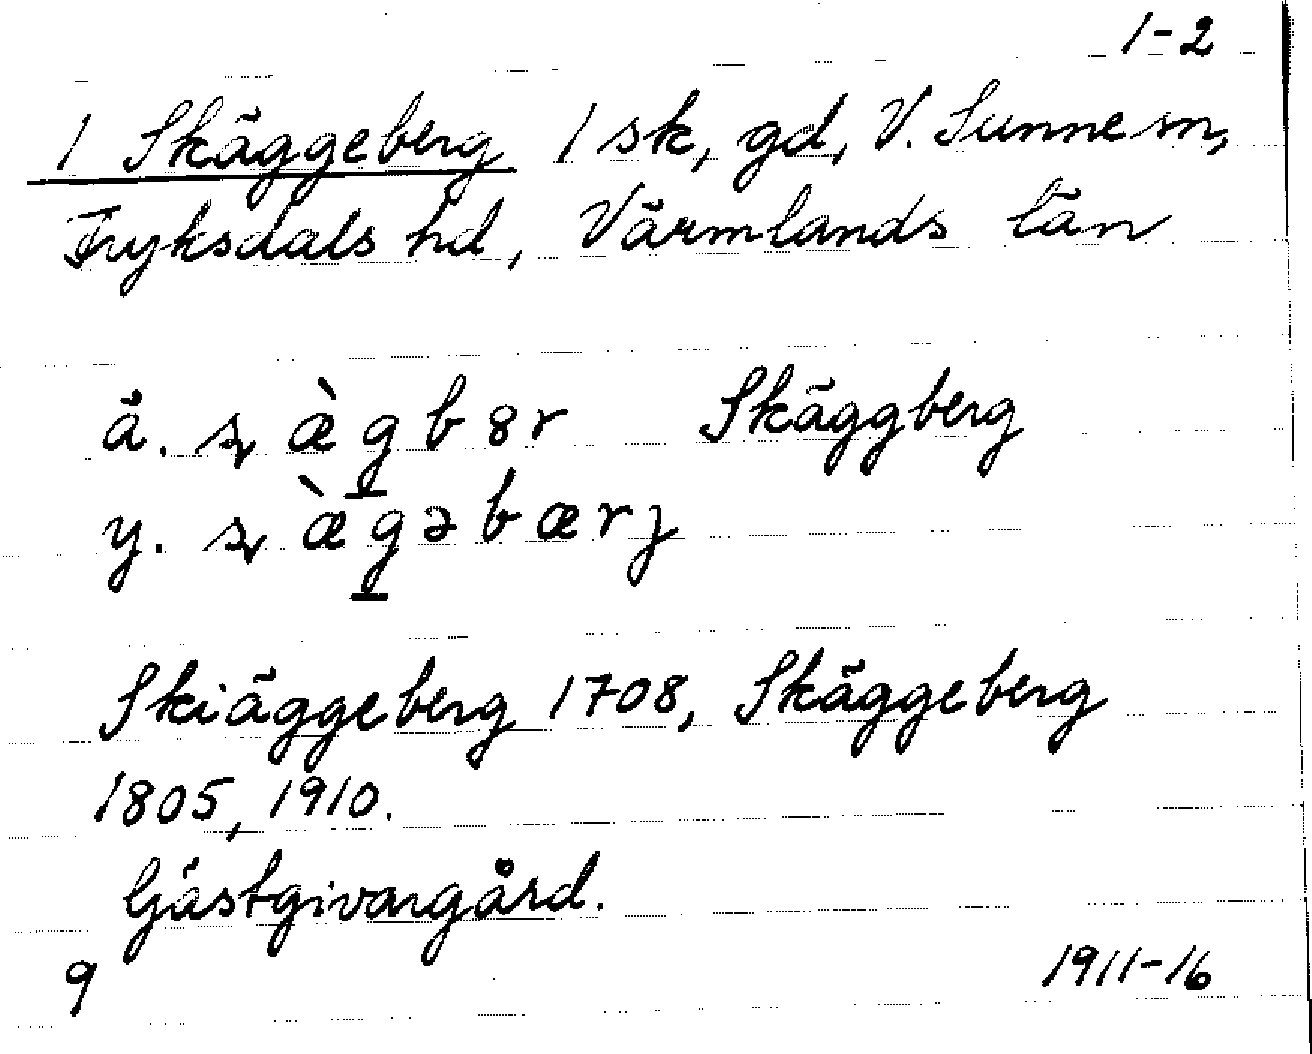 1-2
1 Skäggeberg 1 sk, gd, V. Sunne sn,
Fryksdals hd, Värmlands län
ä. ʂæ̀g̲bɞr Skäggberg
y. ʂæ̀g̲əbærj
Skiäggeberg 1708, Skäggeberg
1805, 1910.
Gästgivargård.
9 1911-16